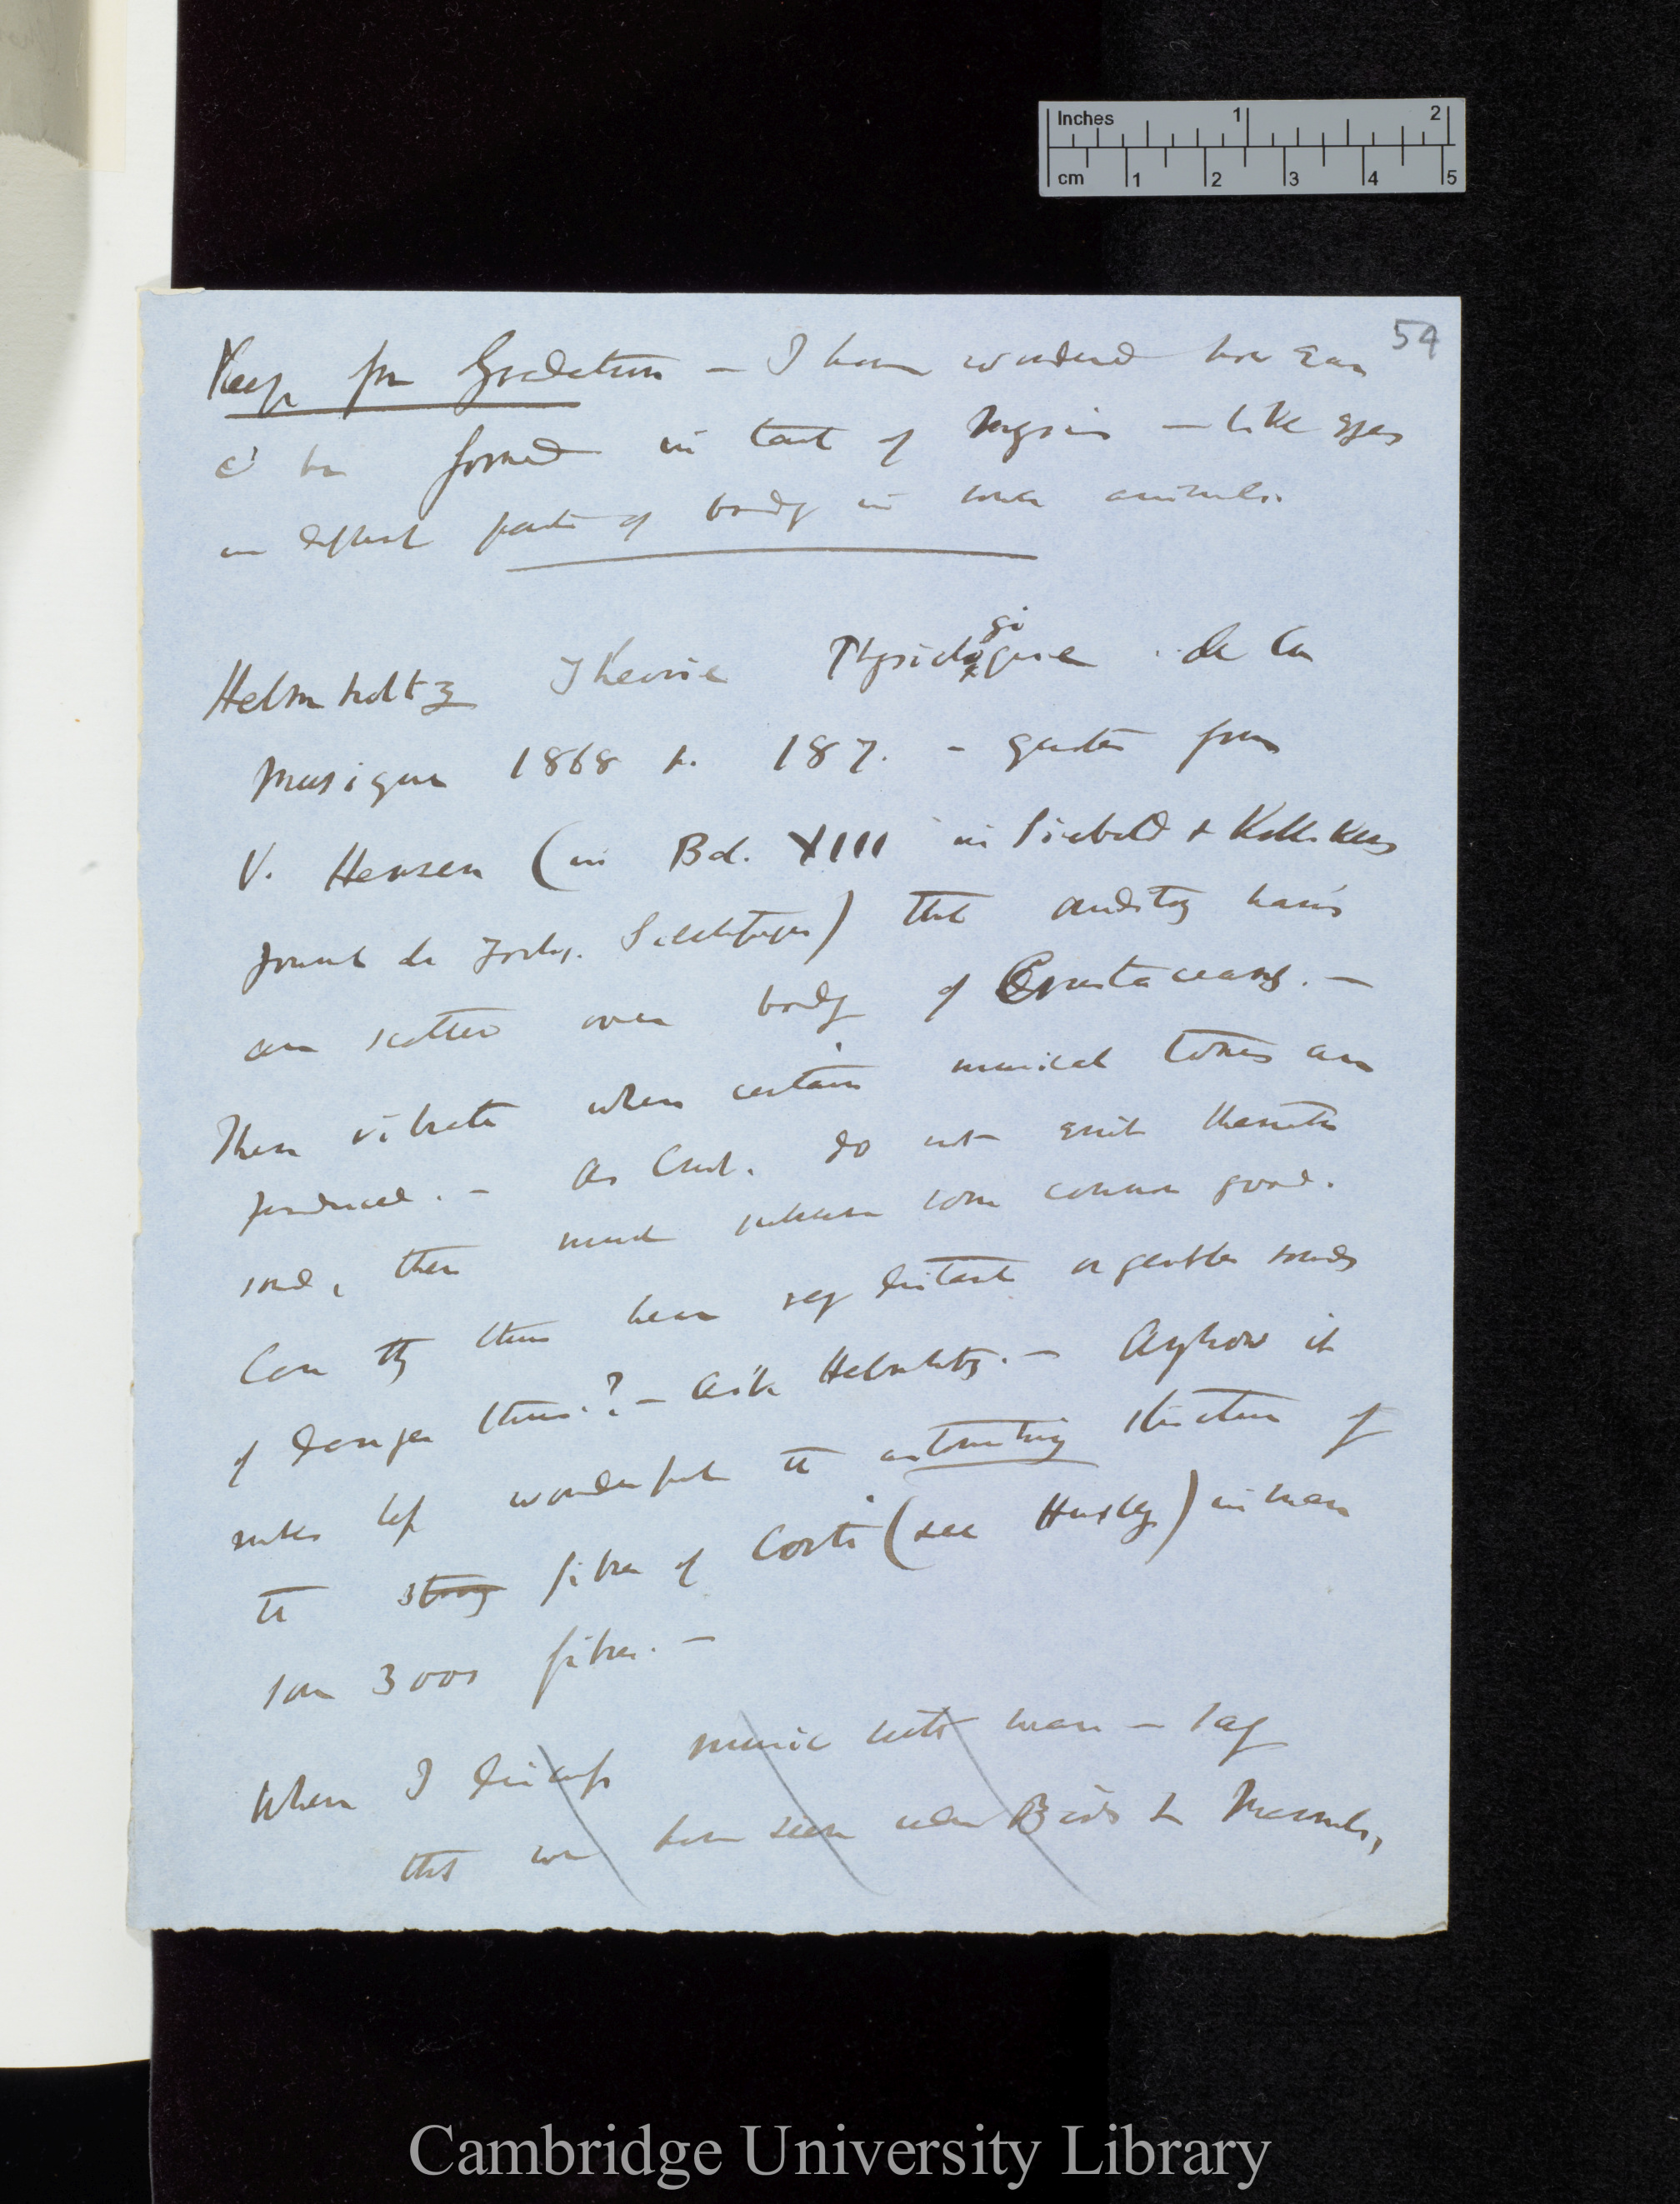 54
Keep for Gradation – I have wondered how ear
cd be formed in tail of Mysis – like eyes
in different parts of body in lower animals.
Helmholtz Theorie Physiologique de la
Musique 1868 p. 187. – quotes from
V. Hensen (in Bd. XIII in Siebold & Kolliker
) that auditory hairs
are scattered over body of Crustaceans. –
These vibrate when certain musical tones are
produced. – As Crust. do not emit themselves
sound, there must subserve some common good.
Can they thus hear very distant or gentle sounds
of danger thus.? – Ask Helmholtz. – Anyhow it
makes less wonderful the astonishing structure of
the strong fibres of Corti (see Huxley) in man
some 3000 fibres. –
When I discuss music with man – say
that we have seen under Birds & Mammals,
Inches 1 2
cm 1 2 3 4 5
Cambridge University Library